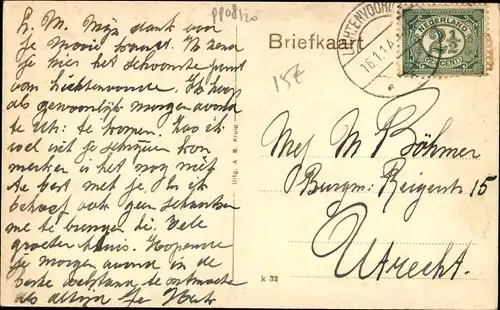 L. M. Mijn dank voor
je mooie kaart. Ik zend
je hier het schoonste punt
van Lichtenvoorde. Ik hoop
als gewoonlijk morgen avond
te Utr: te komen. Zoo ik
wel uit je schrijven kon
merken is het nog niet
te best met je. En ik
behoef ook geen schaatsen
me te brengen hè. Vele
groeten thuis. Hopende
je morgen avond in de
beste welstand te ontmoeten
als altijd je
ppod120
Briefkaart
15E
LICHTENVOOR
16.1.1
NEDERLAND
2½
CENT
Uitg. A. B. Kruip
k 32
Mej M Böhmer
Burgm: Reigerstr 15
Utrecht.